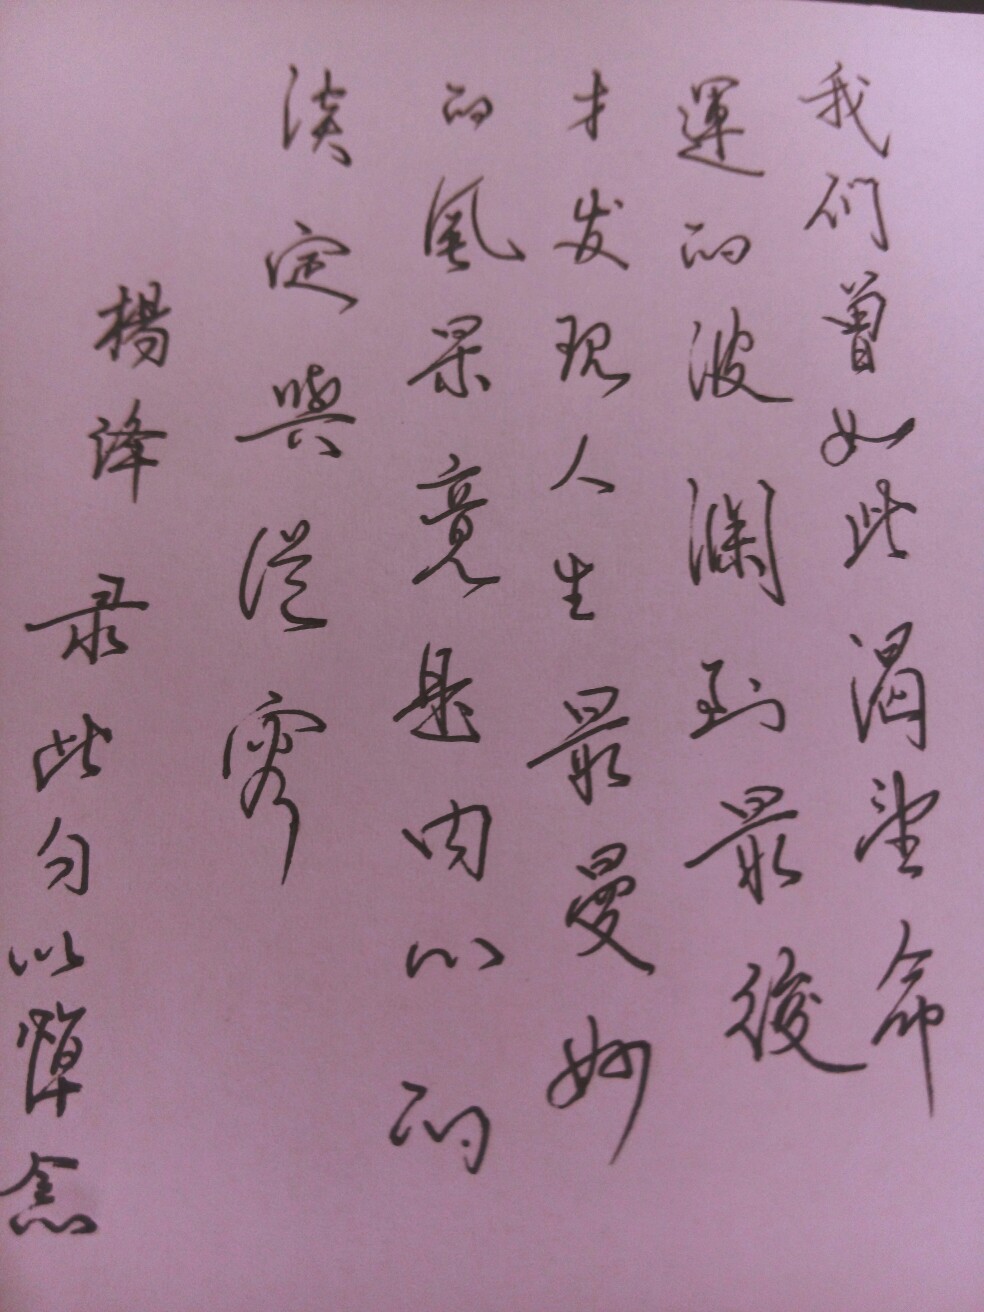 我们曾如此渴望命
運的波澜到最後
才发现人生最曼妙
的風景竟是内心的
淡定與從容
楊泽 录此句以惮念